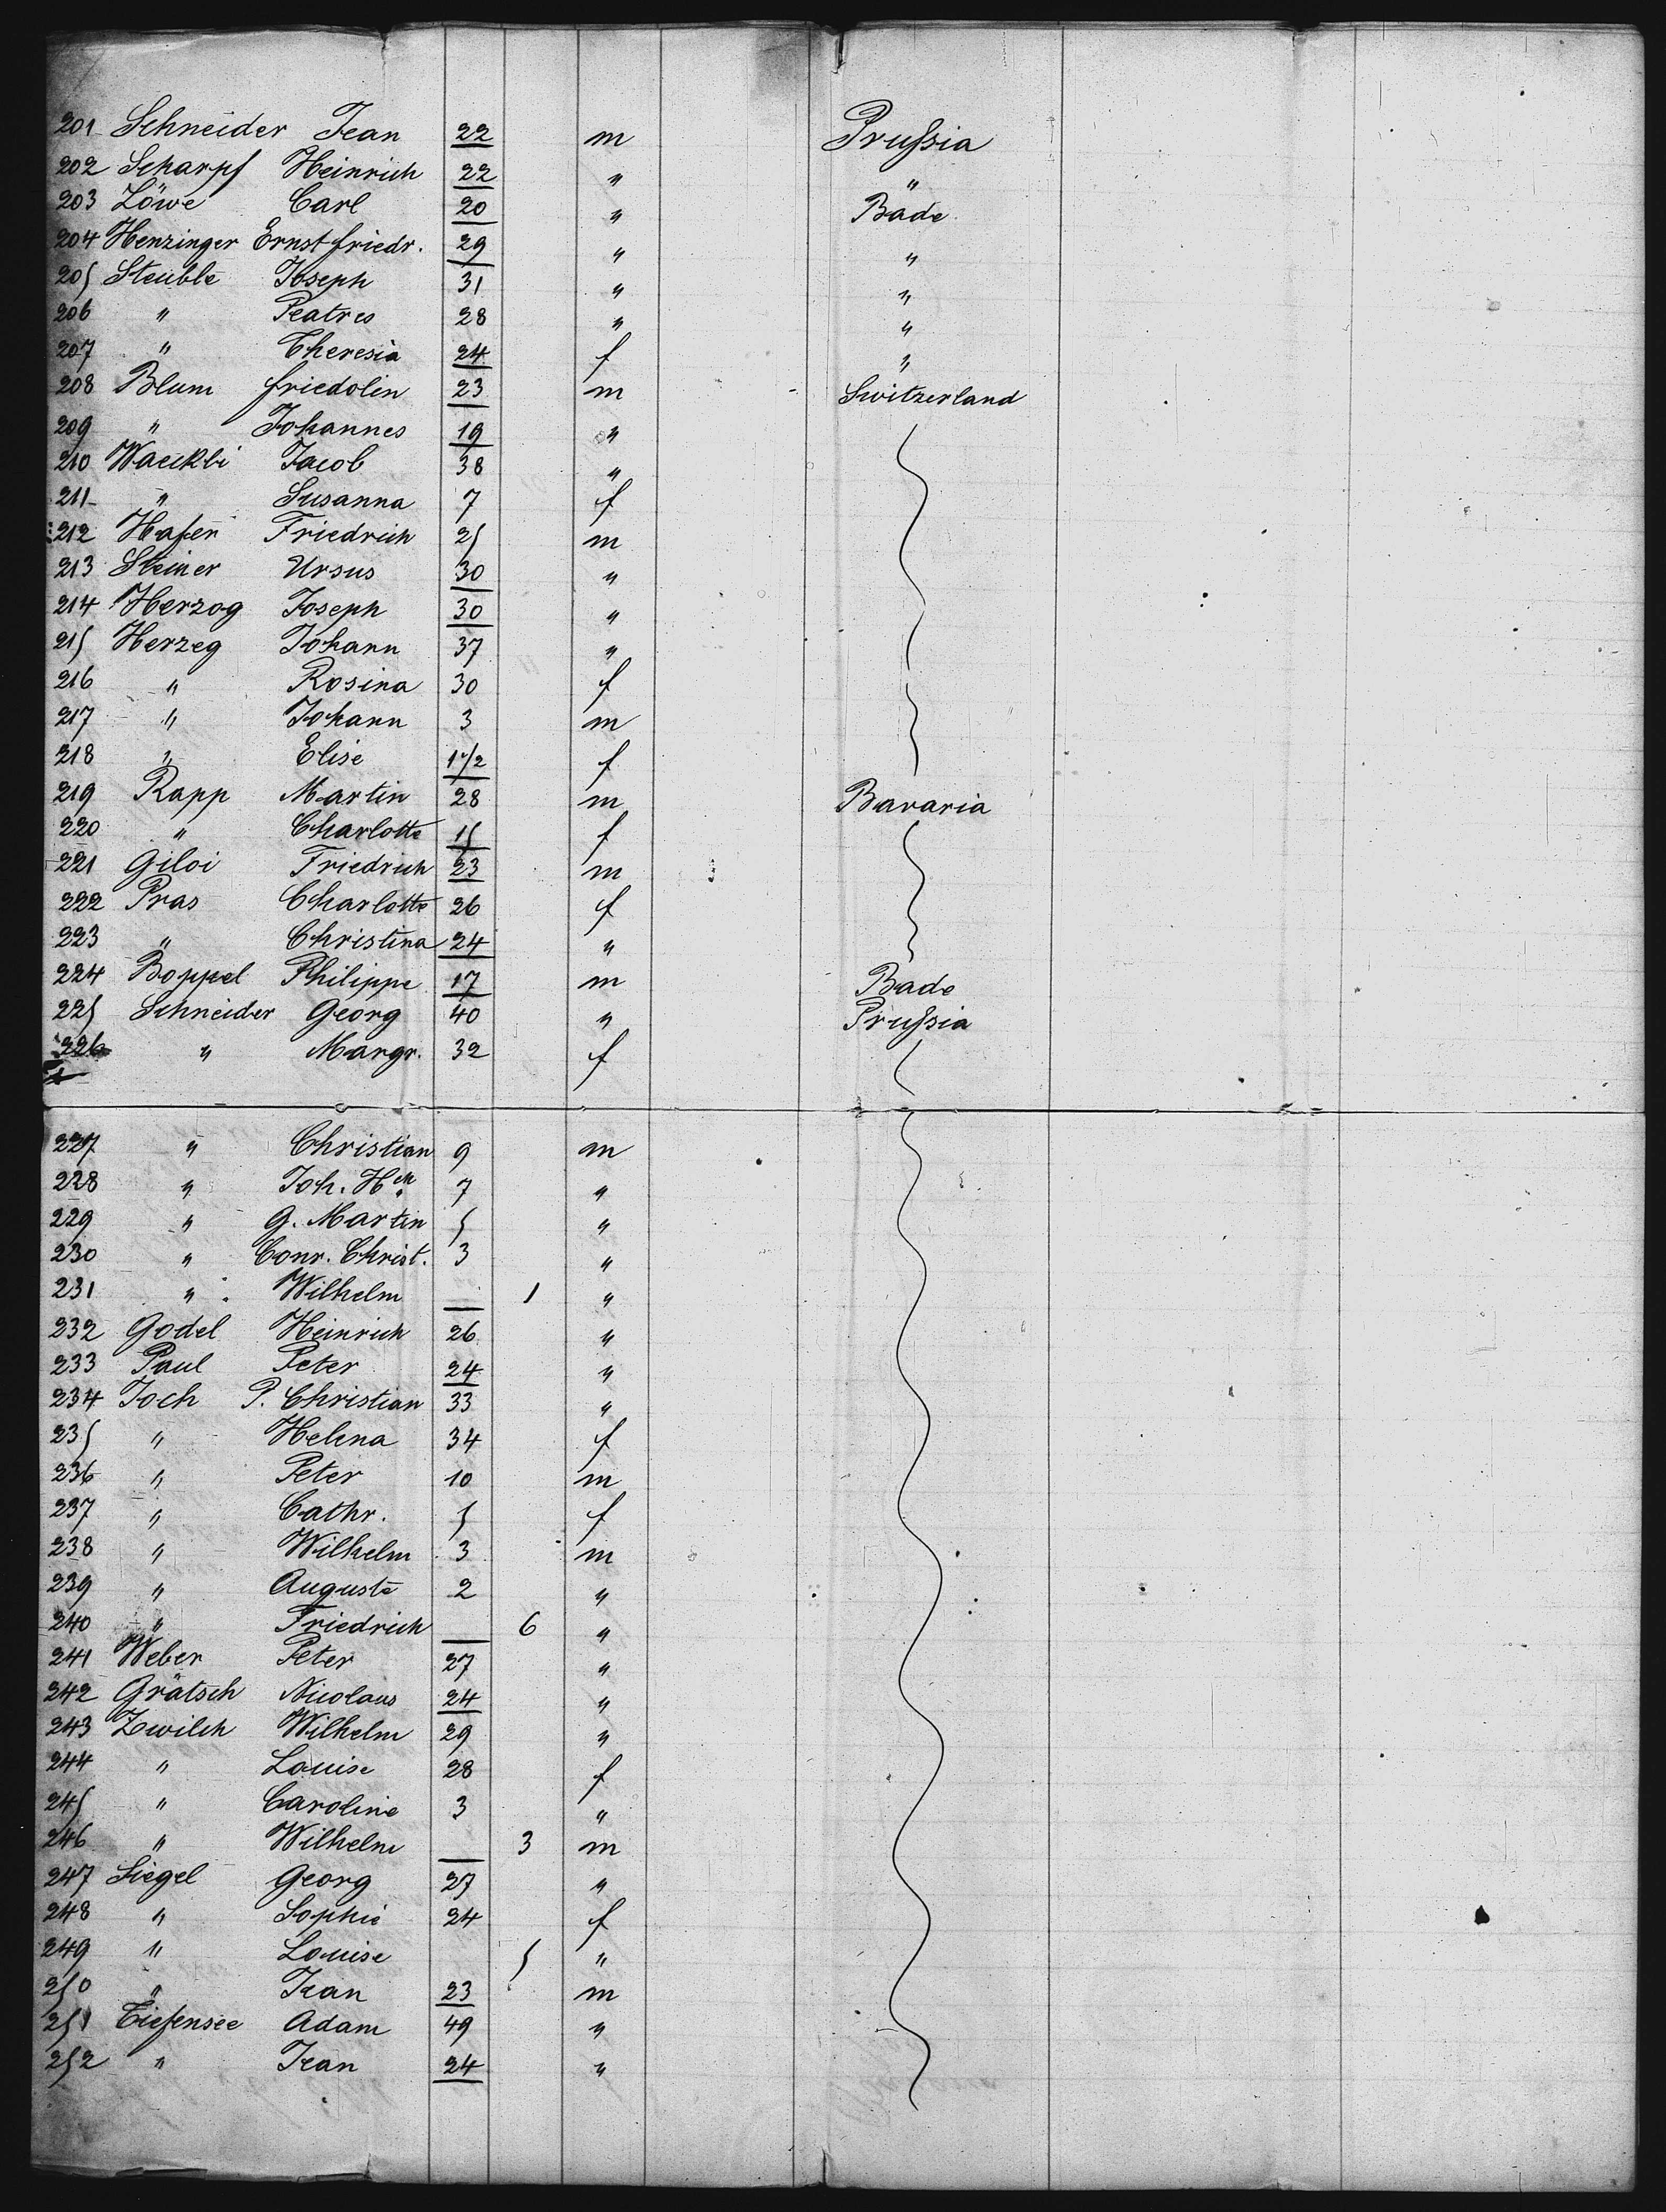 201 Schneider Jean 22 m Prußia
202 Scharpf Heinrich 22 " "
203 Löwe Carl 20 " Bade
204 Henzinger Ernst friedr. 29 " "
205 Steuble Joseph 31 " "
206 " Peatres 28 " "
207 " Theresia 24 f "
208 Blum friedolin 23 m Switzerland
209 " Johannes 19 "
210 Jacob 38 "
211 " Susanna 7 f
212 Hafen Friedrich 25 m
213 Steiner Ursus 30 "
214 Herzog Joseph 30 "
215 Herzeg Johann 37 "
216 " Rosina 30 f
217 " Johann 3 m
218 " Elise 1 1/2 f
219 Rapp Martin 28 m Bavaria
220 " Charlotte 15 f
221 Giloi Friedrich 23 m
222 Pras Charlotte 26 f
223 " Christina 24 "
224 Boppel Philippe 17 m Bade
225 Schneider Georg 40 " Prußia
226 " Margr. 32 f
227 " Christian 9 m
228 " Joh. Hch 7 "
229 " G. Martin 5 "
230 " Conr. Christ. 3 "
231 " Wilhelm 1 "
232 Godel Heinrich 26 "
233 Paul Peter 24 "
234 Joch P. Christian 33 "
235 " Helena 34 f
236 " Peter 10 m
237 " Cathr. 5 f
238 " Wilhelm 3 m
239 " Auguste 2 "
240 " Friedrich 6 "
241 Weber Peter 27 "
242 Grätsch Nicolaus 24 "
243 Zwilch Wilhelm 29 "
244 " Louise 28 f
245 " Caroline 3 "
246 " Wilhelm 3 m
247 Siegel Georg 27 "
248 " Sophie 24 f
249 " Louise 5 "
250 " Jean 23 m
251 Tiefensee Adam 49 "
252 " Jean 24 "